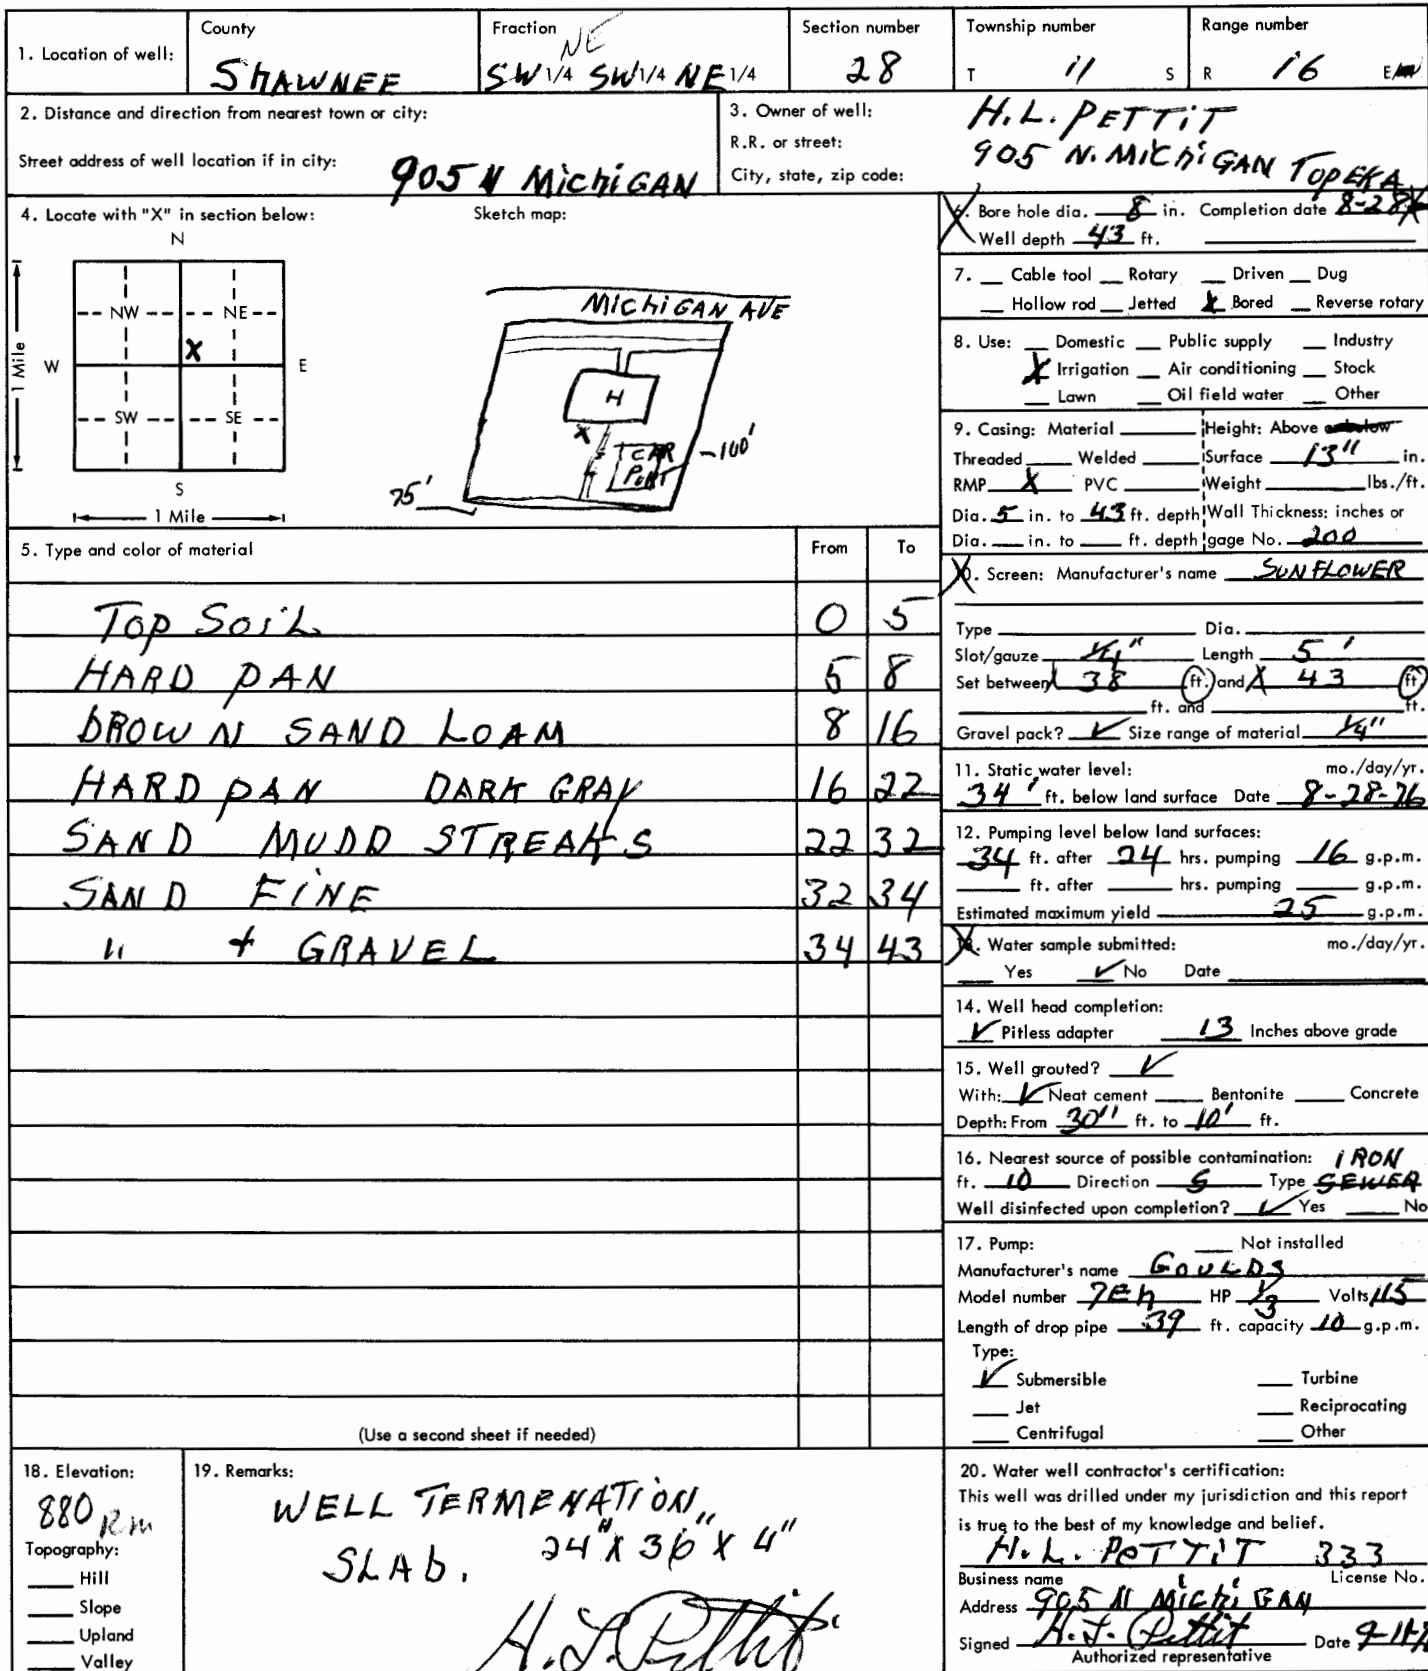 1. Location of well:
County
SHAWNEE
Fraction
NE
SW 1/4 SW 1/4 NE 1/4
Section number
28
Township number
T 11 S
Range number
R 16 E
2. Distance and direction from nearest town or city:
Street address of well location if in city: 905 N MichiGAN
3. Owner of well: H.L. PETTiT
R.R. or street: 905 N. MiChiGAN TOPEKA
City, state, zip code:
4. Locate with "X" in section below:
N
NW NE
X
W E
SW SE
S
1 Mile
1 Mile
Sketch map:
MiChiGAN AVE
H
X
CAR
PORT
100'
75'
5. Type and color of material From To
Top SoiL 0 5
HARD PAN 5 8
BROWN SAND LOAM 8 16
HARD PAN DARK GRAY 16 22
SAND MUDD STREAKS 22 32
SAND FINE 32 34
" + GRAVEL 34 43
(Use a second sheet if needed)
6. Bore hole dia. 8 in. Completion date 8-28
Well depth 43 ft.
7. Cable tool Rotary Driven Dug
Hollow rod Jetted X Bored Reverse rotary
8. Use: Domestic Public supply Industry
X Irrigation Air conditioning Stock
Lawn Oil field water Other
9. Casing: Material Height: Above or below
Threaded Welded Surface 13" in.
RMP X PVC Weight lbs./ft.
Dia. 5 in. to 43 ft. depth Wall Thickness: inches or
Dia. in. to ft. depth gage No. 200
10. Screen: Manufacturer's name SUNFLOWER
Type Dia.
Slot/gauze 1/4" Length 5'
Set between 38 ft. and 43 ft.
ft. and ft.
Gravel pack? ✓ Size range of material 1/4"
11. Static water level: mo./day/yr.
34' ft. below land surface Date 8-28-76
12. Pumping level below land surfaces:
34 ft. after 24 hrs. pumping 16 g.p.m.
ft. after hrs. pumping g.p.m.
Estimated maximum yield 25 g.p.m.
13. Water sample submitted: mo./day/yr.
Yes ✓ No Date
14. Well head completion:
✓ Pitless adapter 13 Inches above grade
15. Well grouted? ✓
With: ✓ Neat cement Bentonite Concrete
Depth: From 30" ft. to 10' ft.
16. Nearest source of possible contamination: iRON
ft. 10 Direction S Type SEWER
Well disinfected upon completion? ✓ Yes No
17. Pump: Not installed
Manufacturer's name GOULDS
Model number 7Eh HP 1/3 Volts 115
Length of drop pipe 39 ft. capacity 10 g.p.m.
Type:
✓ Submersible Turbine
Jet Reciprocating
Centrifugal Other
18. Elevation:
880 Rm
Topography:
Hill
Slope
Upland
Valley
19. Remarks:
WELL TERMENATION
SLAB. 24" X 36" X 4"
H.L. Pettit
20. Water well contractor's certification:
This well was drilled under my jurisdiction and this report
is true to the best of my knowledge and belief.
H.L. PETTIT 333
Business name License No.
Address 905 N MichiGAN
Signed H.L. Pettit Date
Authorized representative